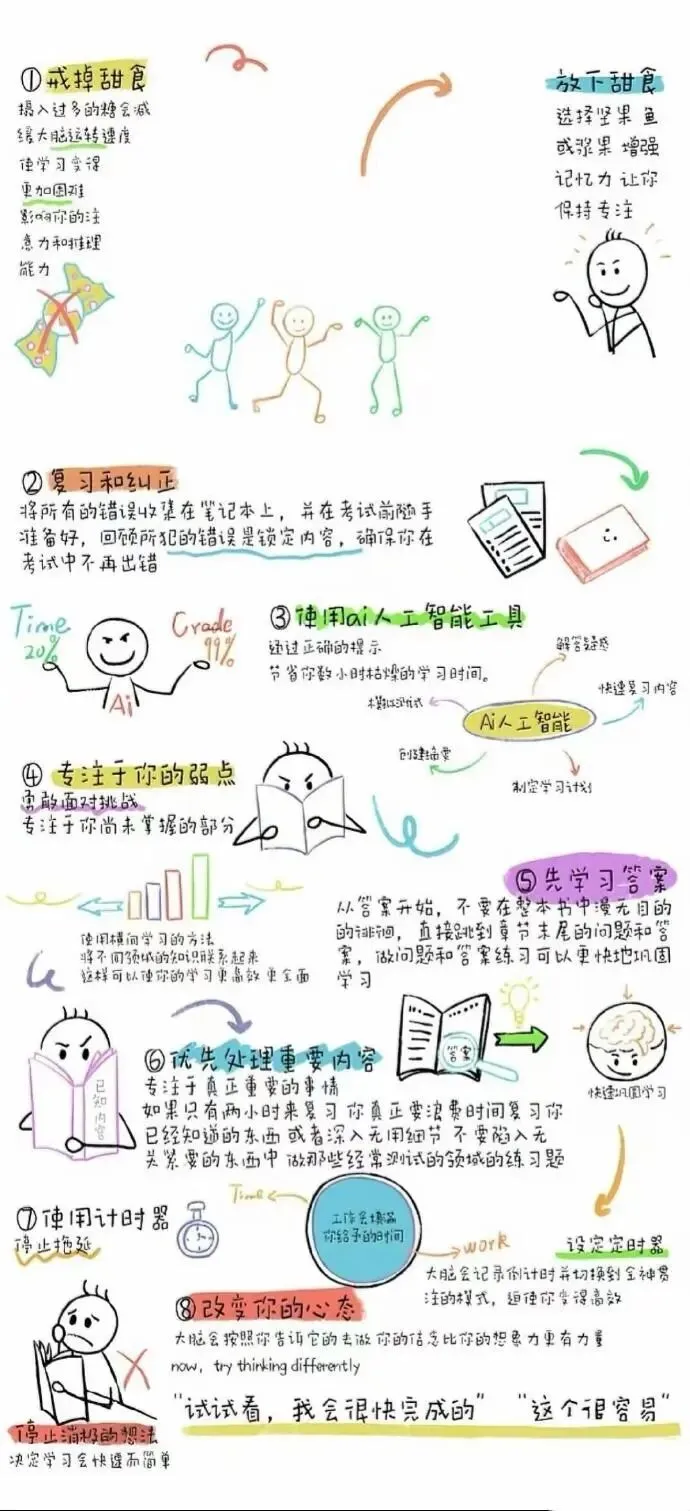 ① 戒掉甜食
摄入过多的糖会减
缓大脑运转速度
使学习变得
更加困难
影响你的注
意力和推理
能力
放下甜食
选择坚果 鱼
或浆果 增强
记忆力 让你
保持专注
② 复习和纠正
将所有的错误收集在笔记本上，并在考试前随手
准备好，回顾所犯的错误是锁定内容，确保你在
考试中不再出错
Time
20%
Grade
99%
Ai
③ 使用ai人工智能工具
通过正确的提示
节省你数小时枯燥的学习时间。
解答疑惑
快速复习内容
模拟测试
Ai人工智能
创建摘要
制定学习计划
④ 专注于你的弱点
勇敢面对挑战
专注于你尚未掌握的部分
使用横向学习的方法
将不同领域的知识联系起来
这样可以使你的学习更高效 更全面
⑤ 先学习答案
从答案开始，不要在整本书中漫无目的
的徘徊，直接跳到章节末尾的问题和答
案，做问题和答案练习可以更快地巩固
学习
答案
快速巩固学习
已知内容
⑥ 优先处理重要内容
专注于真正重要的事情
如果只有两小时来复习 你真正要浪费时间复习你
已经知道的东西 或者深入无用细节 不要陷入无
关紧要的东西中 做那些经常测试的领域的练习题
⑦ 使用计时器
停止拖延
Time
工作会填满
你给予的时间
work
设定定时器
大脑会记录倒计时并切换到全神贯
注的模式，迫使你变得高效
⑧ 改变你的心态
大脑会按照你告诉它的去做 你的信念比你的想象力更有力量
now, try thinking differently
"试试看，我会很快完成的" "这个很容易"
停止消极的想法
决定学习会快速而简单